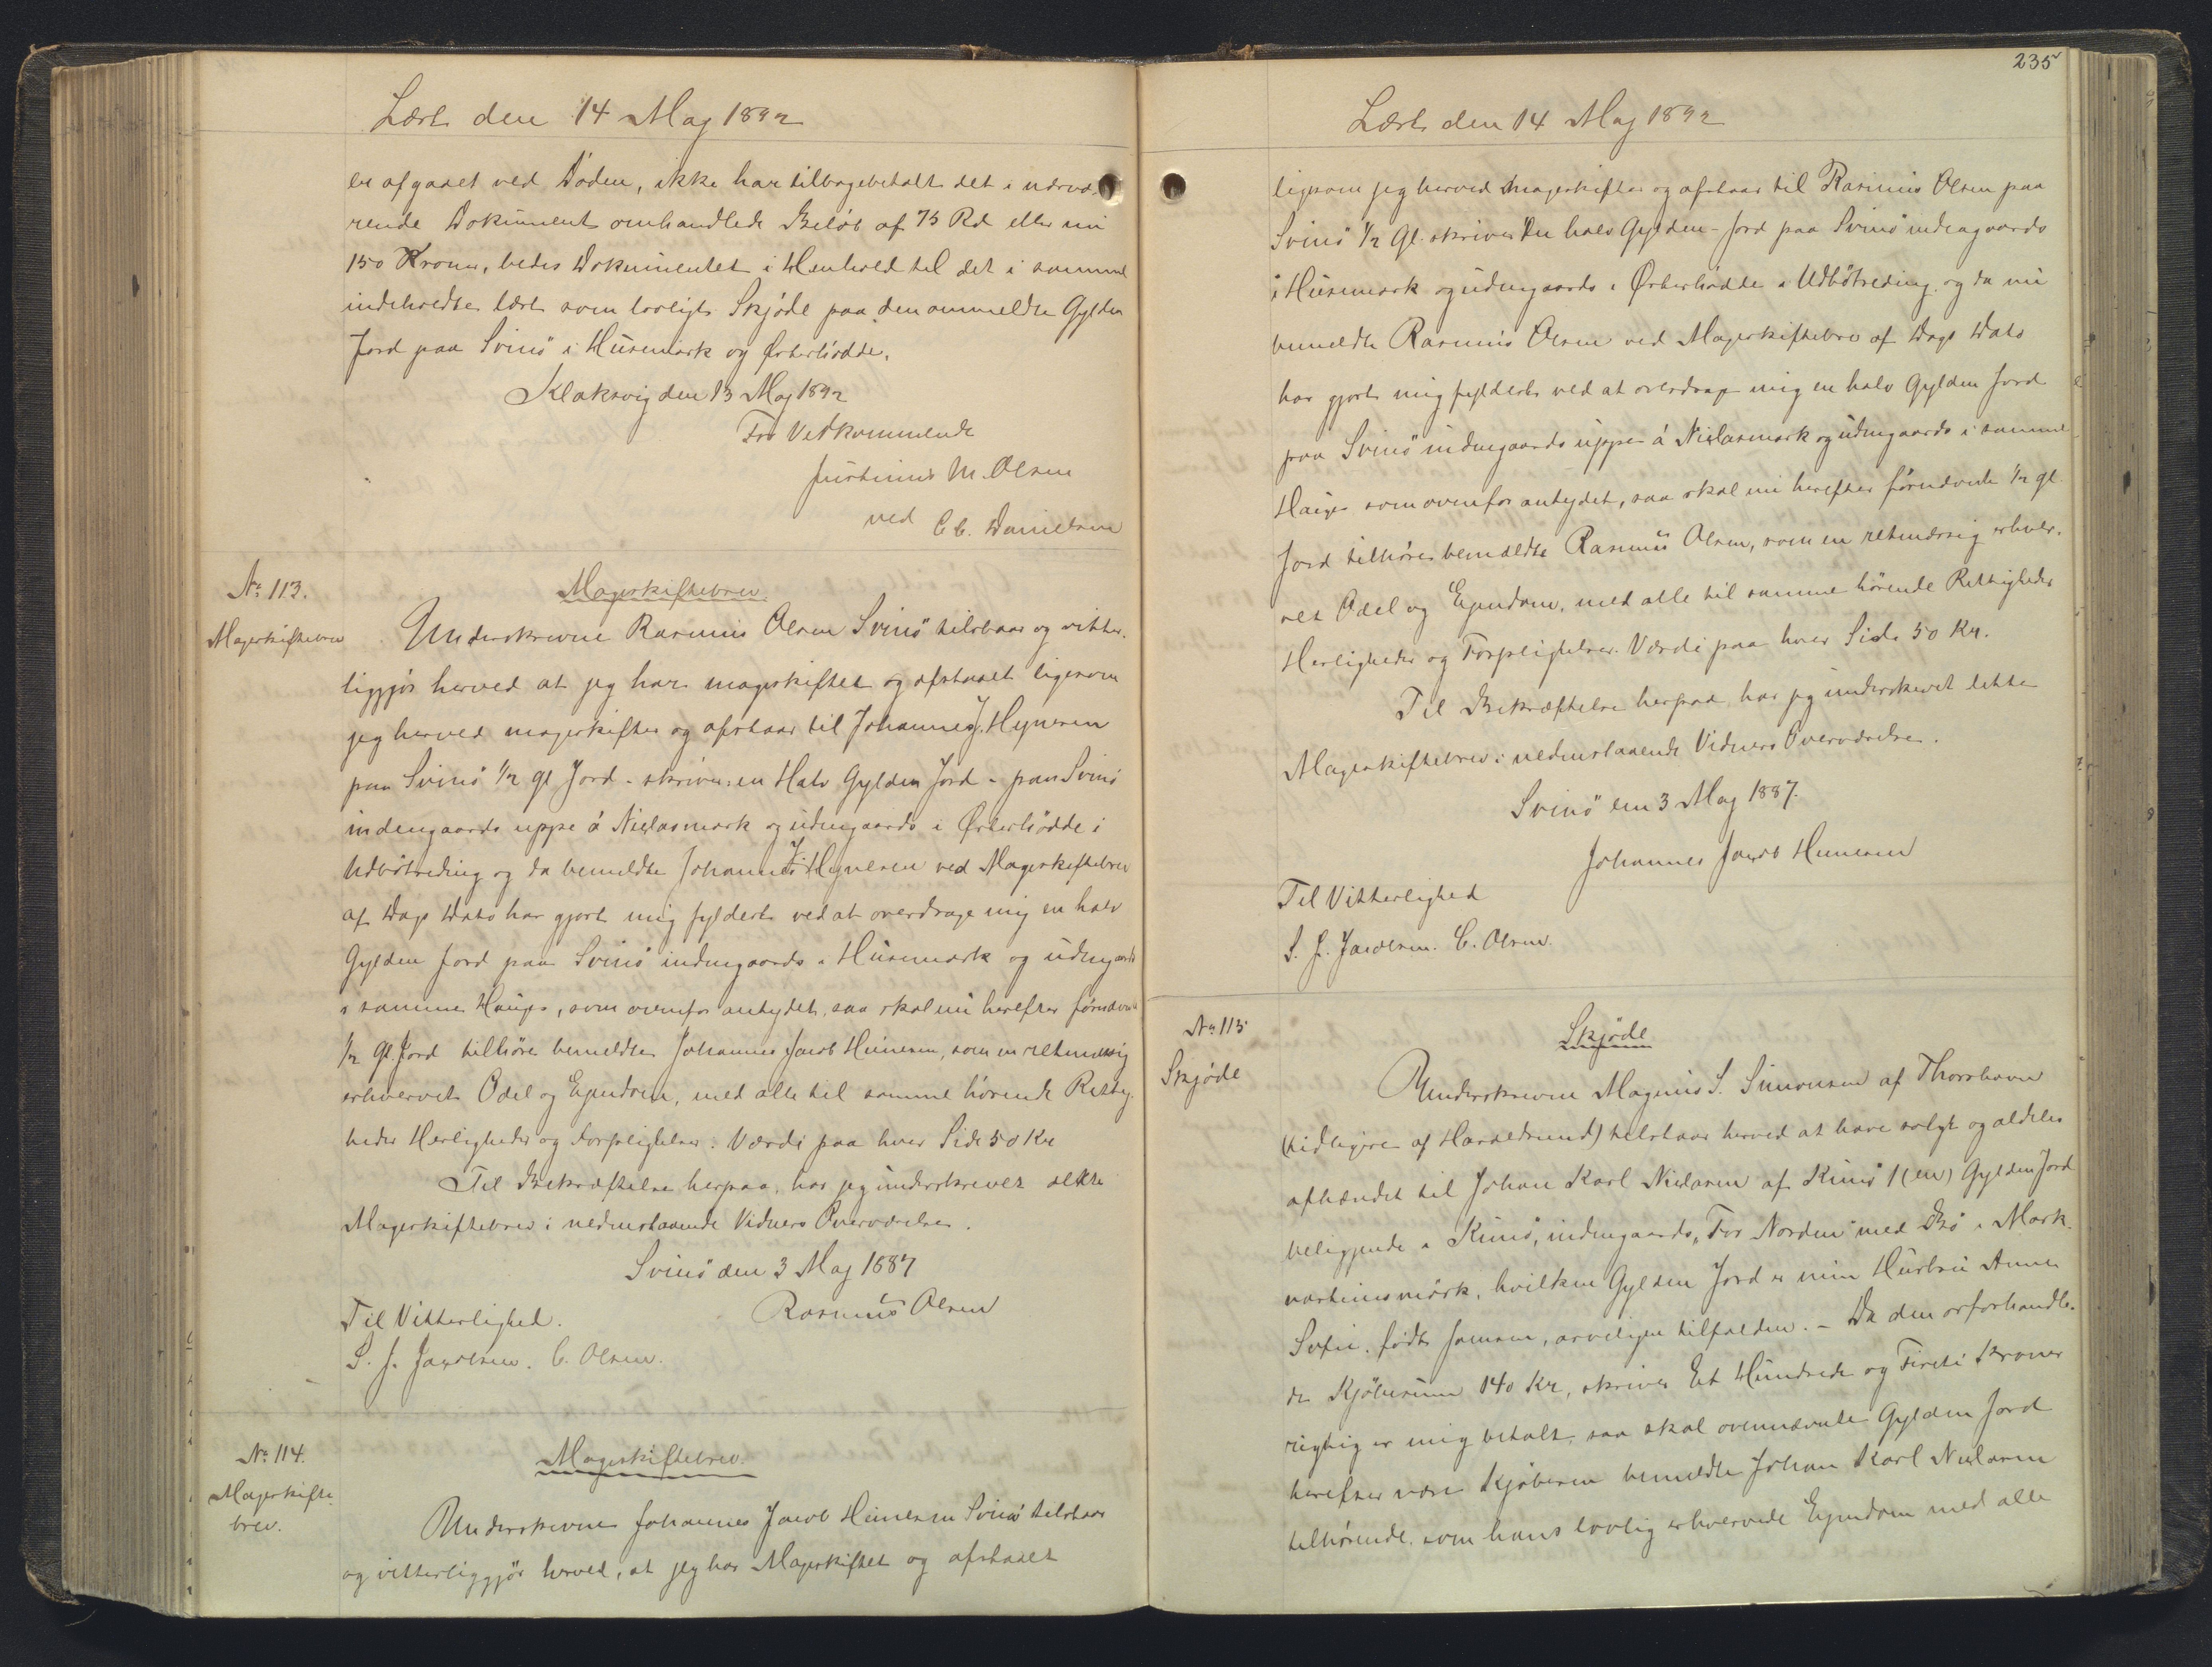 Læst den 14 Maj 1892
er afgaaet ved Døden, ikke har tilbagebetalt det i nærvæ-
rende Dokument omhandlede Beløb af 75 Rd eller nu
150 Kroner, bedes Dokumentet i Henhold til det i samme
indeholdte læst som lovligt Skjøde paa den ommeldte Gylden
Jord paa Svinö i Húsemark og Østerhødde.
Klaksvig den 13 Maj 1892
For Vedkommende
Justinus M. Olsen
ved C. C. Danielsen
No 113.
Magerskiftebrev
Mageskiftebrev.
Underskrevne Rasmus Olsen Svinö tilstaar og vitter-
liggjör herved at jeg har mageskiftet og afstaaet ligesom
jeg herved mageskifter og afstaar til Johannes J. Hynesen
paa Svinö 1/2 gl Jord - skriver: en Halv Gylden Jord - paa Svinö
indengaards uppe á Nielasmark og udengaards i Østerhödde i
Udbötreding og da bemeldte Johannes J. Hynesen ved Mageskiftebrev
af Dags Dato har gjort mig fyldest ved at overdrage mig en halv
Gylden Jord paa Svinö indengaards i Húsemark og udengaards
i samme Hauge, som ovenfor antydet, saa skal nu herefter förnævnte
1/2 Gl. Jord tilhöre bemeldte Johannes Jacob Heinesen, som en retmæssig
erhvervet Odel og Ejendom, med alle til samme hörende Rettig-
heder Herligheder og Forpligtelser. Værdi paa hver Side 50 Kr
Til Bekræftelse herpaa, har jeg underskrevet dette
Mageskiftebrev i nedenstaaende Vidners Overværelse.
Svinö den 3 Maj 1887
Rasmus Olsen
Til Vitterlighed.
S. J. Jacobsen. C. Olsen.
No 114.
Mageskifte
brev.
Mageskiftebrev.
Underskrevne Johannes Jacob Heinesen Svinö tilstaar
og vitterliggjör herved, at jeg har Mageskiftet og afstaaet
235
Læst den 14 Maj 1892
ligesom jeg herved mageskifter og afstaar til Rasmus Olsen paa
Svinö 1/2 Gl. skriver En halv Gylden-Jord paa Svinö indengaards
i Húsemark og udengaards i Østerhødde i Udbötreding. og da nu
bemeldte Rasmus Olsen ved Mageskiftebrev af Dags Dato
har gjort mig fyldest ved at overdrage mig en halv Gylden Jord
paa Svinö indengaards uppe á Nielasmark og udengaards i samme
Hauge som ovenfor antydet, saa skal nu herefter förnævnte 1/2 gl.
Jord tilhöre bemældte Rasmus Olsen, som en retmæssig erhver-
vet Odel og Ejendom, med alle til samme hörende Rettigheder
Herligheder og Forpligtelser. Værdi paa hver Side 50 Kr.
Til Bekræftelse herpaa har jeg underskrevet dette
Mageskiftebrev i nedenstaaende Vidners Overværelse.
Svinö den 3 Maj 1887.
Johannes Jacob Heinesen
Til Vitterlighed
S. J. Jacobsen. C. Olsen.
No 115
Skjøde
Skjøde
Underskrevne Magnus S. Simonsen af Thorshavn
(tidligere af Haraldsund) tilstaar herved at have solgt og aldeles
afhændet til Johan Karl Nielasen af Kunö 1 (en) Gylden Jord
beliggende i Kunö, indengaards, "For Norden" med Bö i Mark.
, hvilken Gylden Jord er min Hustru Anne
Sofie, født Joensen, arveligen tilfalden. - Da den omforhandle-
de Kjöbesum 140 Kr, skriver Et Hundrede og Fireti Kroner
rigtig er mig betalt, saa skal ovennævnte Gylden Jord
herefter være Kjöberen bemeldte Johan Karl Nielasen
tilhørende, som hans lovlig erhvervede Ejendom med alle